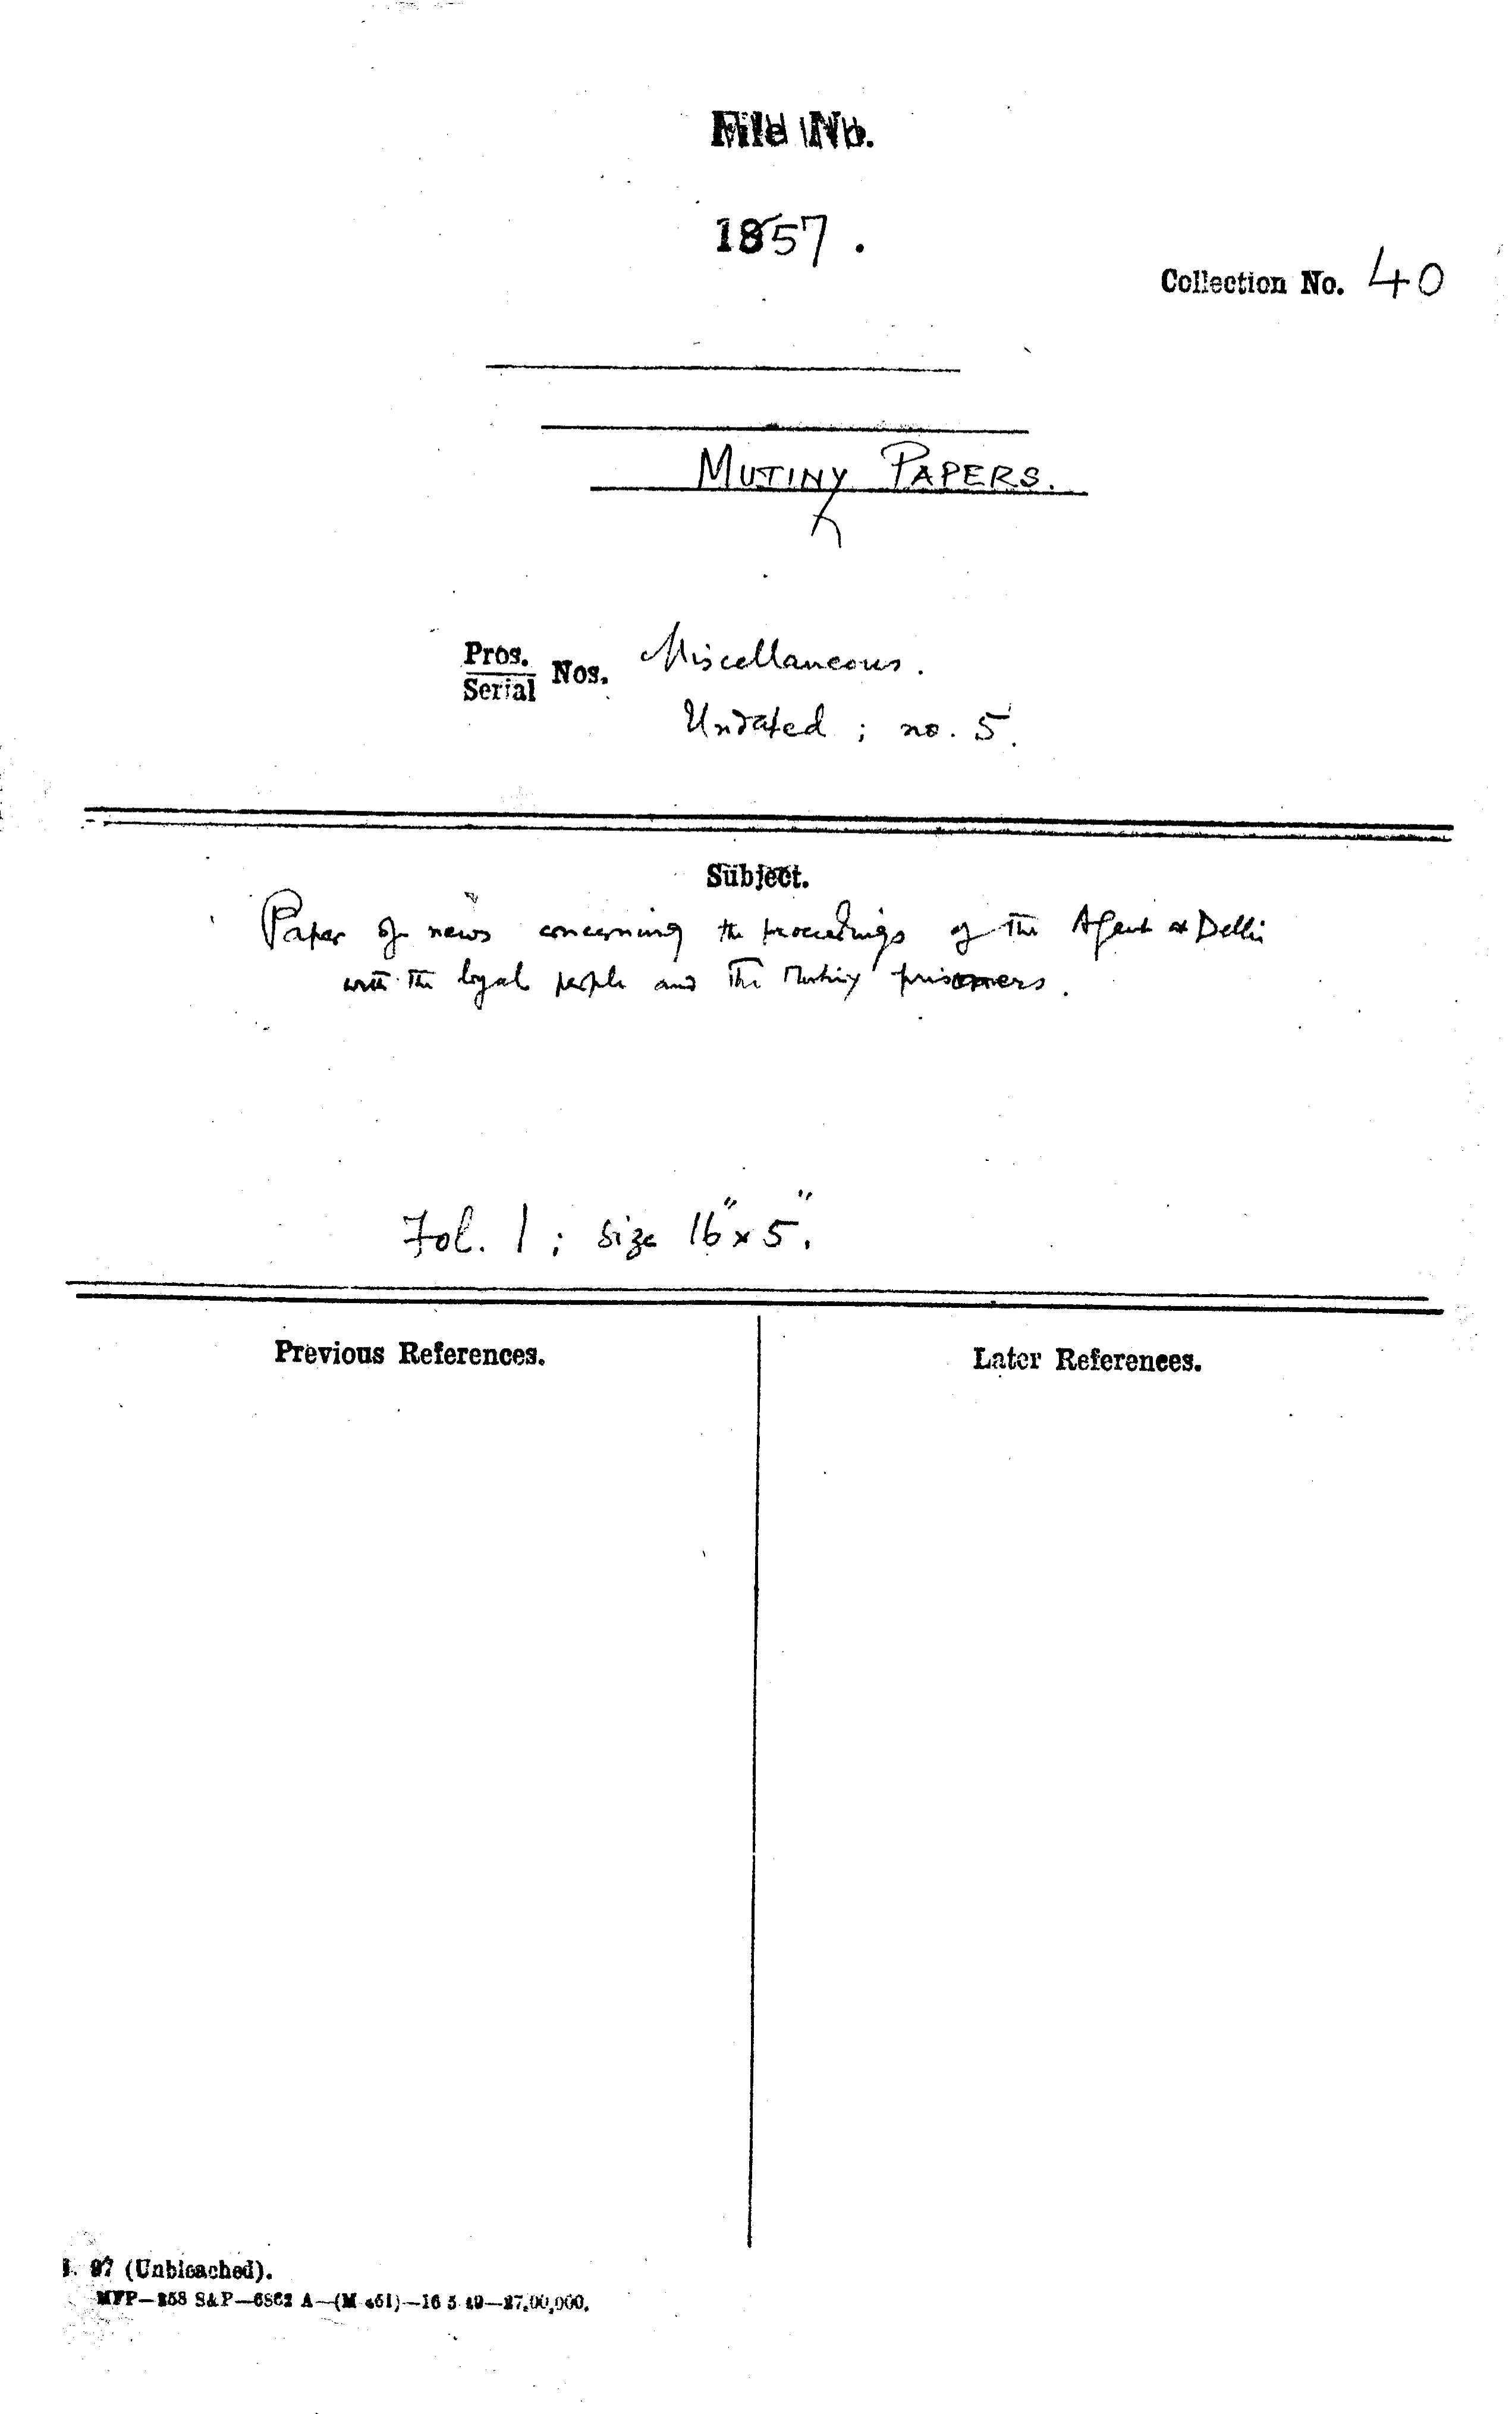 File No.
1857.
Collection No. 40
MUTINY PAPERS.
Pros.
Serial Nos. Miscellaneous.
Undated; no. 5.
Subject.
Paper of news concerning the proceedings of the Agent at Delhi
with the loyal people and the Mutiny prisoners.
Fol. 1; size 16"x5".
Previous References.
Later References.
97 (Unbleached).
S&P